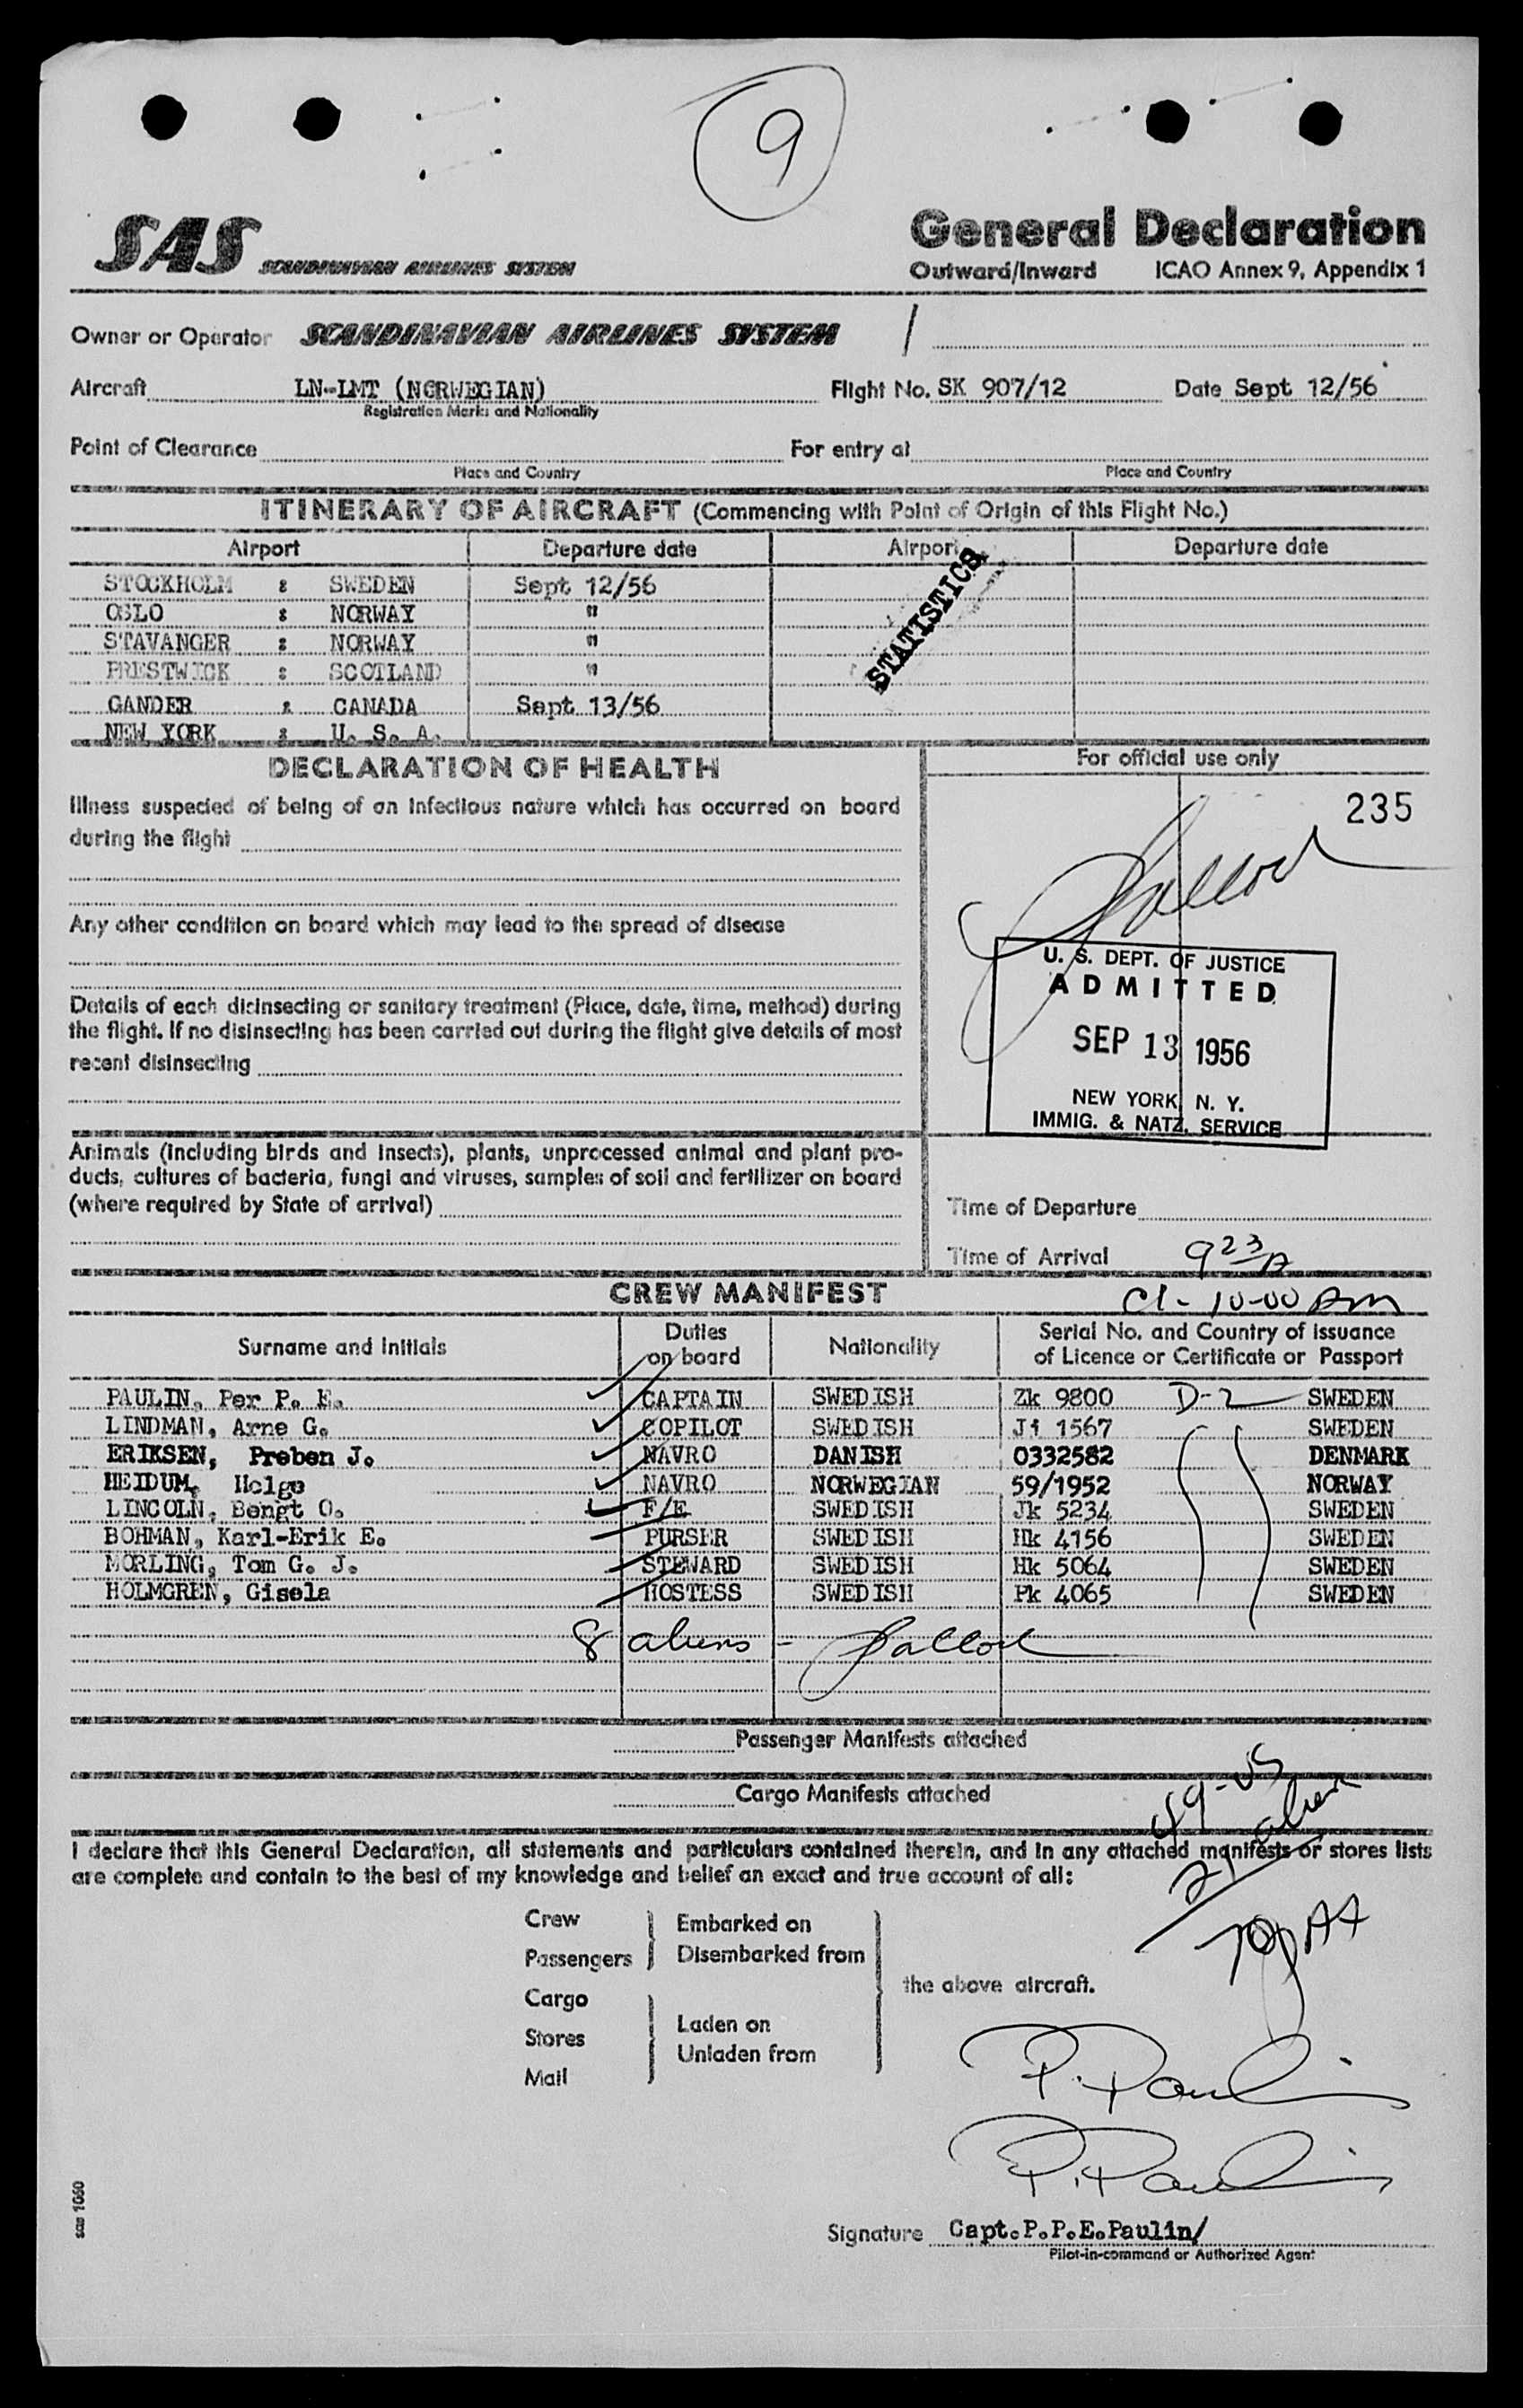 9
SAS SCANDINAVIAN AIRLINES SYSTEM
General Declaration
Outward/Inward ICAO Annex 9, Appendix 1
Owner or Operator SCANDINAVIAN AIRLINES SYSTEM
Aircraft LN-LMT (NORWEGIAN) Flight No. SK 907/12 Date Sept 12/56
Registration Marks and Nationality
Point of Clearance For entry at
Place and Country Place and Country
ITINERARY OF AIRCRAFT (Commencing with Point of Origin of this Flight No.)
Airport Departure date Airport Departure date
STOCKHOLM : SWEDEN Sept 12/56
OSLO : NORWAY "
STAVANGER : NORWAY "
PRESTWICK : SCOTLAND "
GANDER : CANADA Sept 13/56
NEW YORK : U. S. A.
STATISTICS
DECLARATION OF HEALTH
Illness suspected of being of an infectious nature which has occurred on board
during the flight
Any other condition on board which may lead to the spread of disease
Details of each disinsecting or sanitary treatment (Place, date, time, method) during
the flight. If no disinsecting has been carried out during the flight give details of most
recent disinsecting
Animals (including birds and insects), plants, unprocessed animal and plant pro-
ducts, cultures of bacteria, fungi and viruses, samples of soil and fertilizer on board
(where required by State of arrival)
For official use only
235
U. S. DEPT. OF JUSTICE
ADMITTED
SEP 13 1956
NEW YORK, N. Y.
IMMIG. & NATZ. SERVICE
Time of Departure
Time of Arrival 9 23 A
Cl- 10-00 AM
CREW MANIFEST
Surname and Initials Duties on board Nationality Serial No. and Country of Issuance of Licence or Certificate or Passport
PAULIN, Per P. E. CAPTAIN SWEDISH Zk 9800 D-2 SWEDEN
LINDMAN, Arne G. COPILOT SWEDISH Ji 1567 SWEDEN
ERIKSEN, Preben J. NAVRO DANISH 0332582 DENMARK
HEIDUM, Helge NAVRO NORWEGIAN 59/1952 NORWAY
LINCOLN, Bengt O. F/E SWEDISH Jk 5234 SWEDEN
BOHMAN, Karl-Erik E. PURSER SWEDISH Hk 4156 SWEDEN
MORLING, Tom G. J. STEWARD SWEDISH Hk 5064 SWEDEN
HOLMGREN, Gisela HOSTESS SWEDISH Pk 4065 SWEDEN
8 aliens -
Passenger Manifests attached
Cargo Manifests attached
49-US
21 alien
I declare that this General Declaration, all statements and particulars contained therein, and in any attached manifests or stores lists
are complete and contain to the best of my knowledge and belief an exact and true account of all:
70
Crew Embarked on
Passengers Disembarked from
the above aircraft.
Cargo
Laden on
Stores
Unladen from
Mail
P. Paulin
P. Paulin
sas 1060
Signature Capt.P.P.E.Paulin/
Pilot-in-command or Authorized Agent